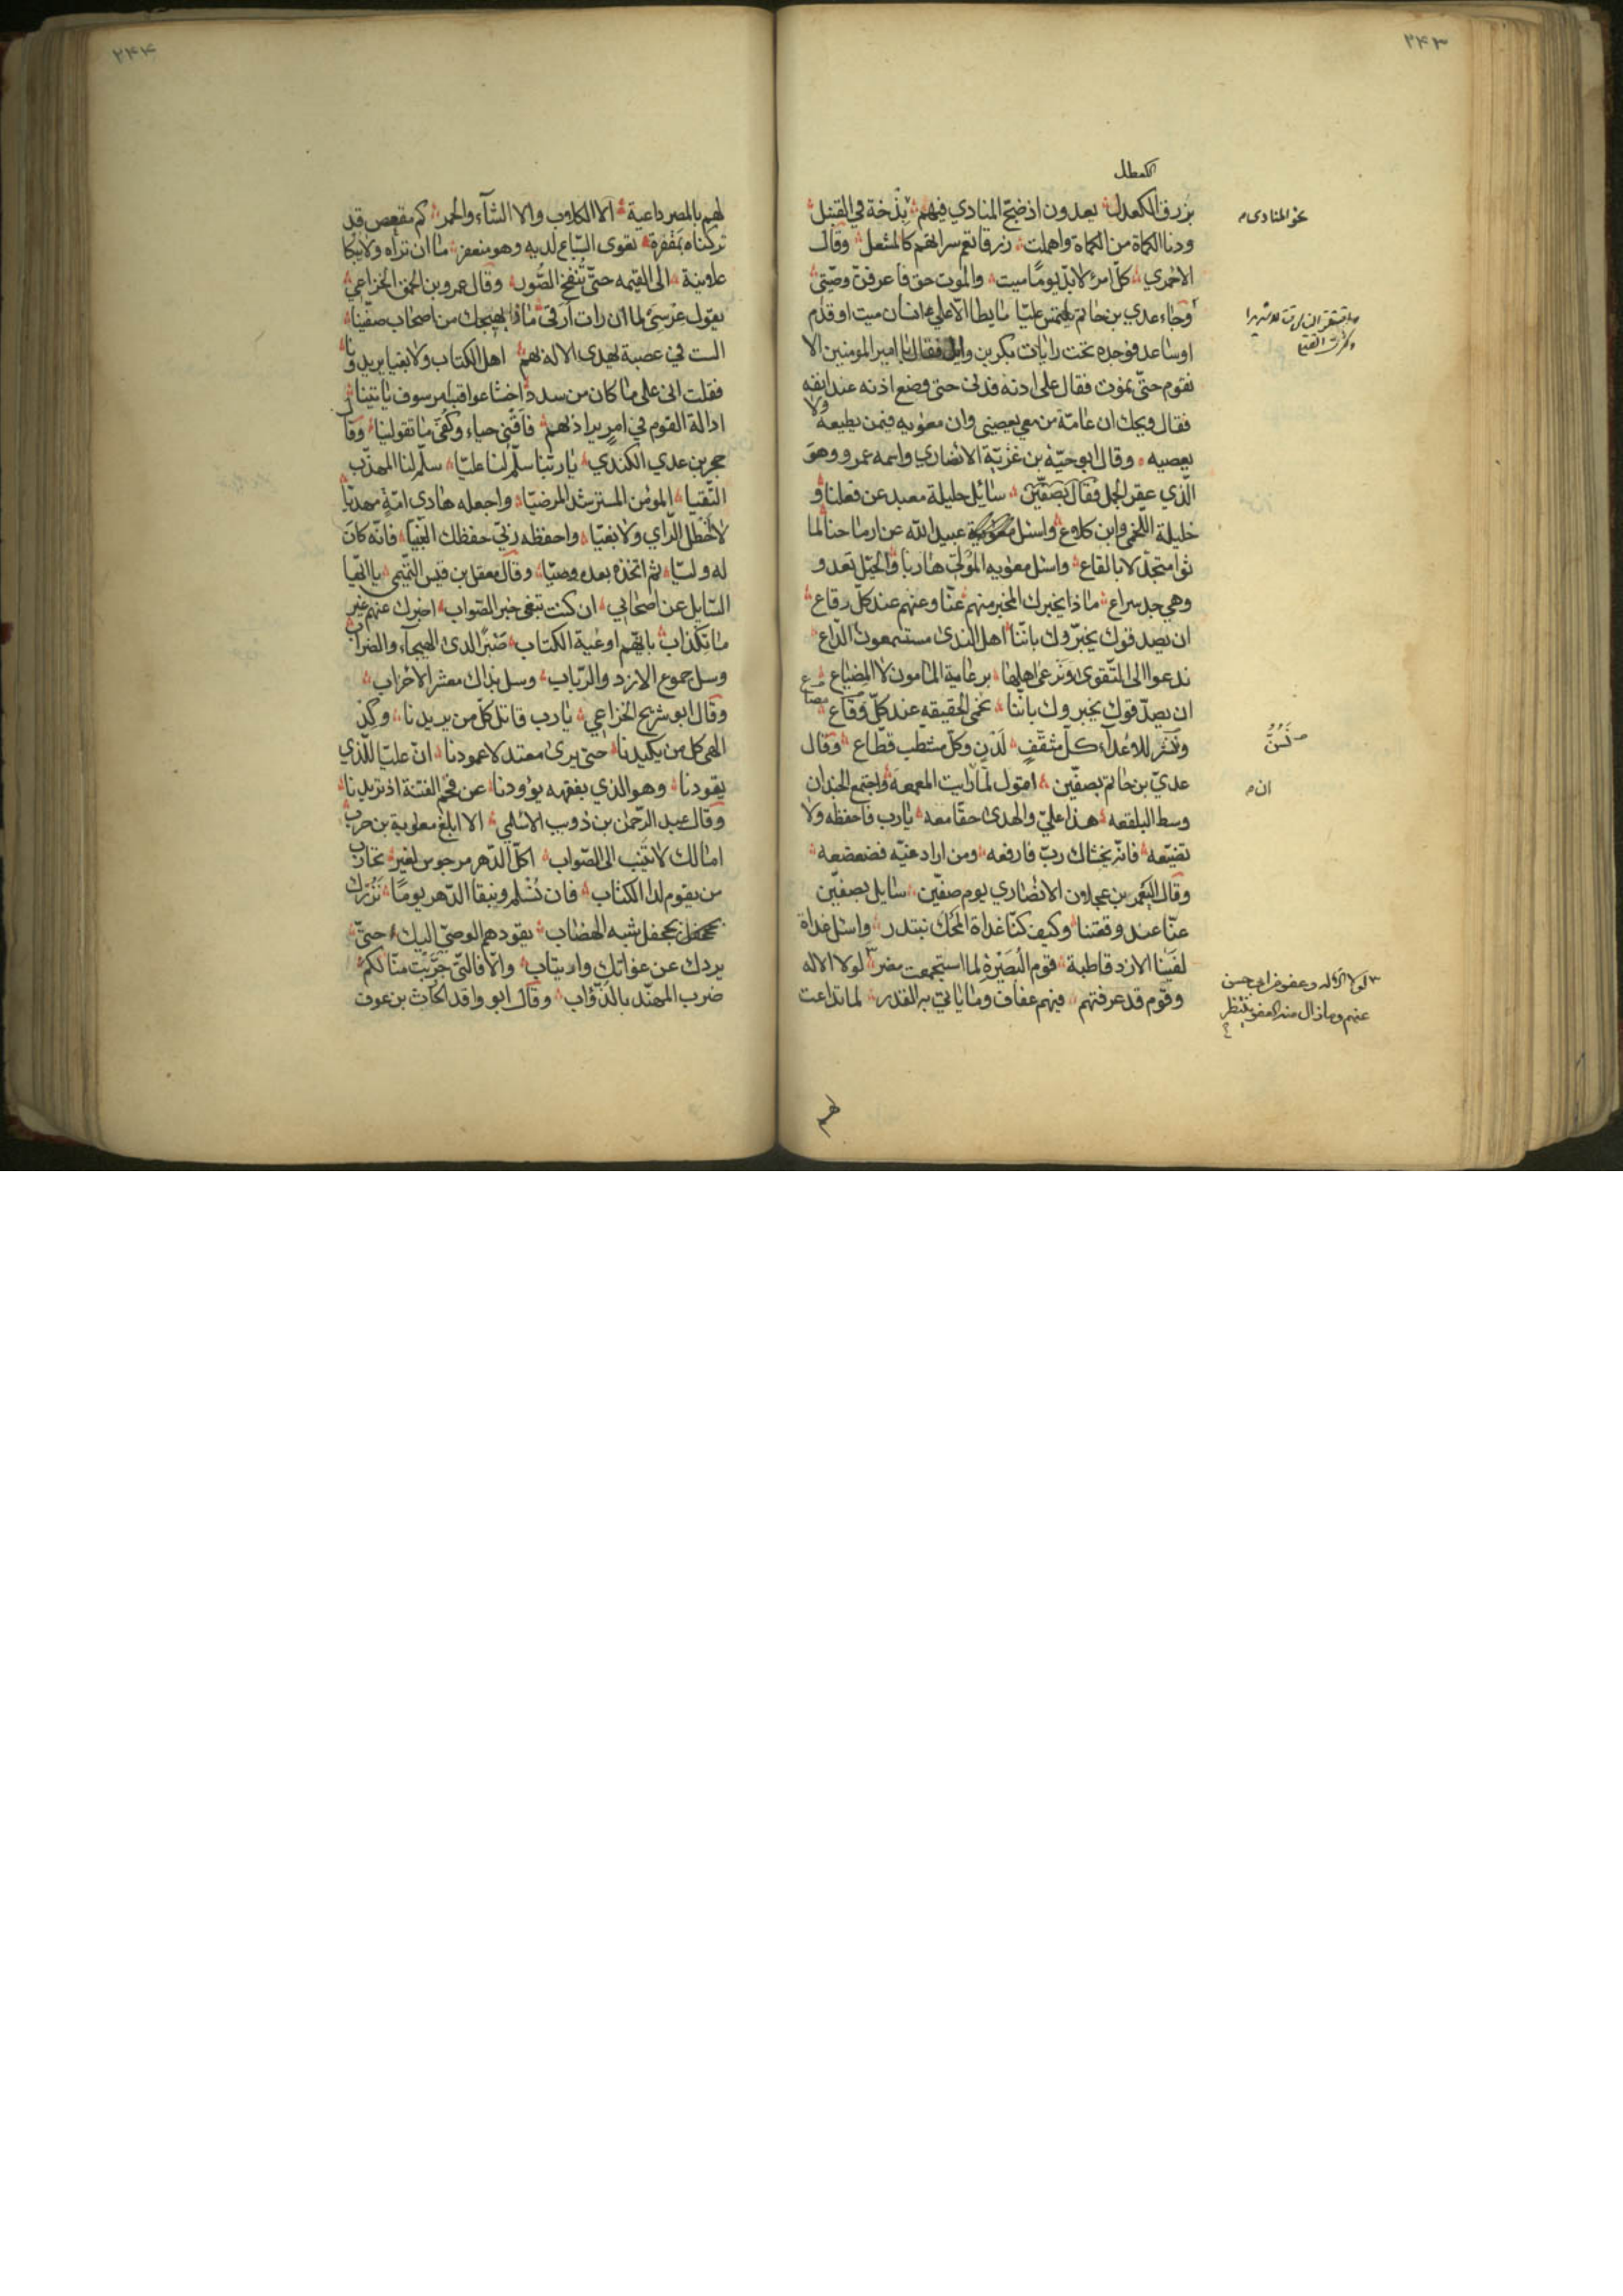 ٢٤٣
كمعطل
بزرق الكعدل يعدون اذ ضجّ المنادي فيهم بذخة في القنبل
نحو المنادى
ودنا الكماة من الكماة واهملت زرقا تعم سراتهم كالمشعل وقال
الاحمري كلّ امرئ لا بدّ يومًا ميت والموت حق فاعرفنّ وصيّتي
وجاء عدي بن حاتم يلتمس عليّا ما يطا الّا على انسان ميت او قدم
او ساعد فوجده تحت رايات بكر بن وايل فقال يا امير المومنين الا
نقوم حتّى نموت فقال على ادنه فدنى حتى وضع اذنه عند انفه
فقال ويحك ان عامّة من معي يعصيني وان معويه فيمن يطيعه ولا
يعصيه وقال ابو حيّة بن غزيّة الانصاري واسمه عمرو وهو
الّذي عقر الجمل فقال بصفّين سائل حليلة معبد عن فعلنا و
حليلة اللخمي وابن كلاع واسئل عبيد الله عن ارماحنا لما
ثوا متجدّلا بالقاع واسئل معويه المولّي هاربا والخيل تعدو
وهي جد سراع ماذا يخبرك المخبر منهم عنّا وعنهم عند كلّ رقاع
ان يصدقوك يخبّروك بانّنا اهل الندى مستسمعون الدّاع
ندعوا الى التّقوى ونرعى اهلها برعاية المامون لا المضياع
ان يصدّقوك يخبروك بانّنا نحمي الحقيقه عند كلّ وقاع
ونسنّ للاعداء كلّ مثقّف لدن وكلّ مشطب قطّاع وقال
نسنّ
عديّ بن حاتم بصفّين اقول لمّا رايت المعمعة واجتمع الجندان
ان
وسط البلقعه هذا علي والهدى حقّا معه يا رب فاحفظه ولا
تضيّعه فانّه يخشاك ربّ فارفعه ومن اراد غيّه فضعضعه
وقال النعمن بن عجلان الانصاري يوم صفّين سايل بصفّين
عنّا عند وقعتنا وكيف كنّا غداة المحك نبتدر واسئل غداة
لقينا الازد قاطبة قوم البصيرة لما استجمعت مضر لولا الاله
وقوم قد عرفتهم فيهم عفاف وما ياتي به القدر لما تداعت
لولا الاله وعفو من ابي حسن
عنهم وما زال منه العفو ينتظر
لهم
٢٤٤
لهم بالمصر داعية الا الكلاب والا الشاء والحمر كم مقعص قد
تركناه بمقفرة تعوى السّباع لديه وهو منعفر ما ان تراه ولا تبكا
علانية الى القيمه حتّى تنفخ الصّور وقال عمرو بن الحمق الخزاعي
يقول عرسي لما ان رات ارقى ماذا يهيجك من اصحاب صفّينا
الست في عصبة يهدى الاله بهم اهل الكتاب ولا بغيا يريدونا
فقلت انى على ما كان من سدد اخشا عواقب امر سوف ياتينا
ادالة القوم في امر يراد بهم فاقني حياء وكفى ما تقولينا وقال
حجر بن عدي الكندي يا ربّنا سلّم لنا عليّا سلّم لنا المهذّب
النّقيا المومن المسترشد المرضيّا واجعله هادى امّة مهديّا
لا خطل الرّاي ولا بغيّا واحفظه ربّي حفظك النبيّا فانّه كان
له وليّا ثم اتخذه بعده وصيّا وقال معقل بن قيس التميمي يا ايّها
السّايل عن اصحابي ان كنت تبغى خبر الصّواب اخبرك عنهم غير
ما تكذاب بانّهم اوعية الكتاب صبر لدى الهيجاء والضراب
وسل جموع الازد والرّباب وسل بذاك معشر الاحزاب
وقال ابو شريح الخزاعي يا رب قاتل كلّ من يريدنا وكد
الهى كل من يكيدنا حتى يرى معتدلا عمودنا انّ عليّا للّذي
يقودنا وهو الذي بفقهه يؤودنا عن قحم الفتنة اذ تريدنا
وقال عبد الرّحمن بن ذويب الاسلمي الا ابلغ معاوية بن حرب
امالك لا تنيب الى الصّواب اكلّ الدّهر مرجوس لغير تحارب
من يقوم لدا الكتاب فان تسلم وتبقا الدّهر يومًا نزرك
بجحفل شبه الهضاب يقودهم الوصيّ اليك حتىّ
يردك عن غواتك وارتياب والّا فالتّي جرّبت منّا لكم
ضرب المهنّد بالذّؤاب وقال ابو واقد الحارث بن عوف